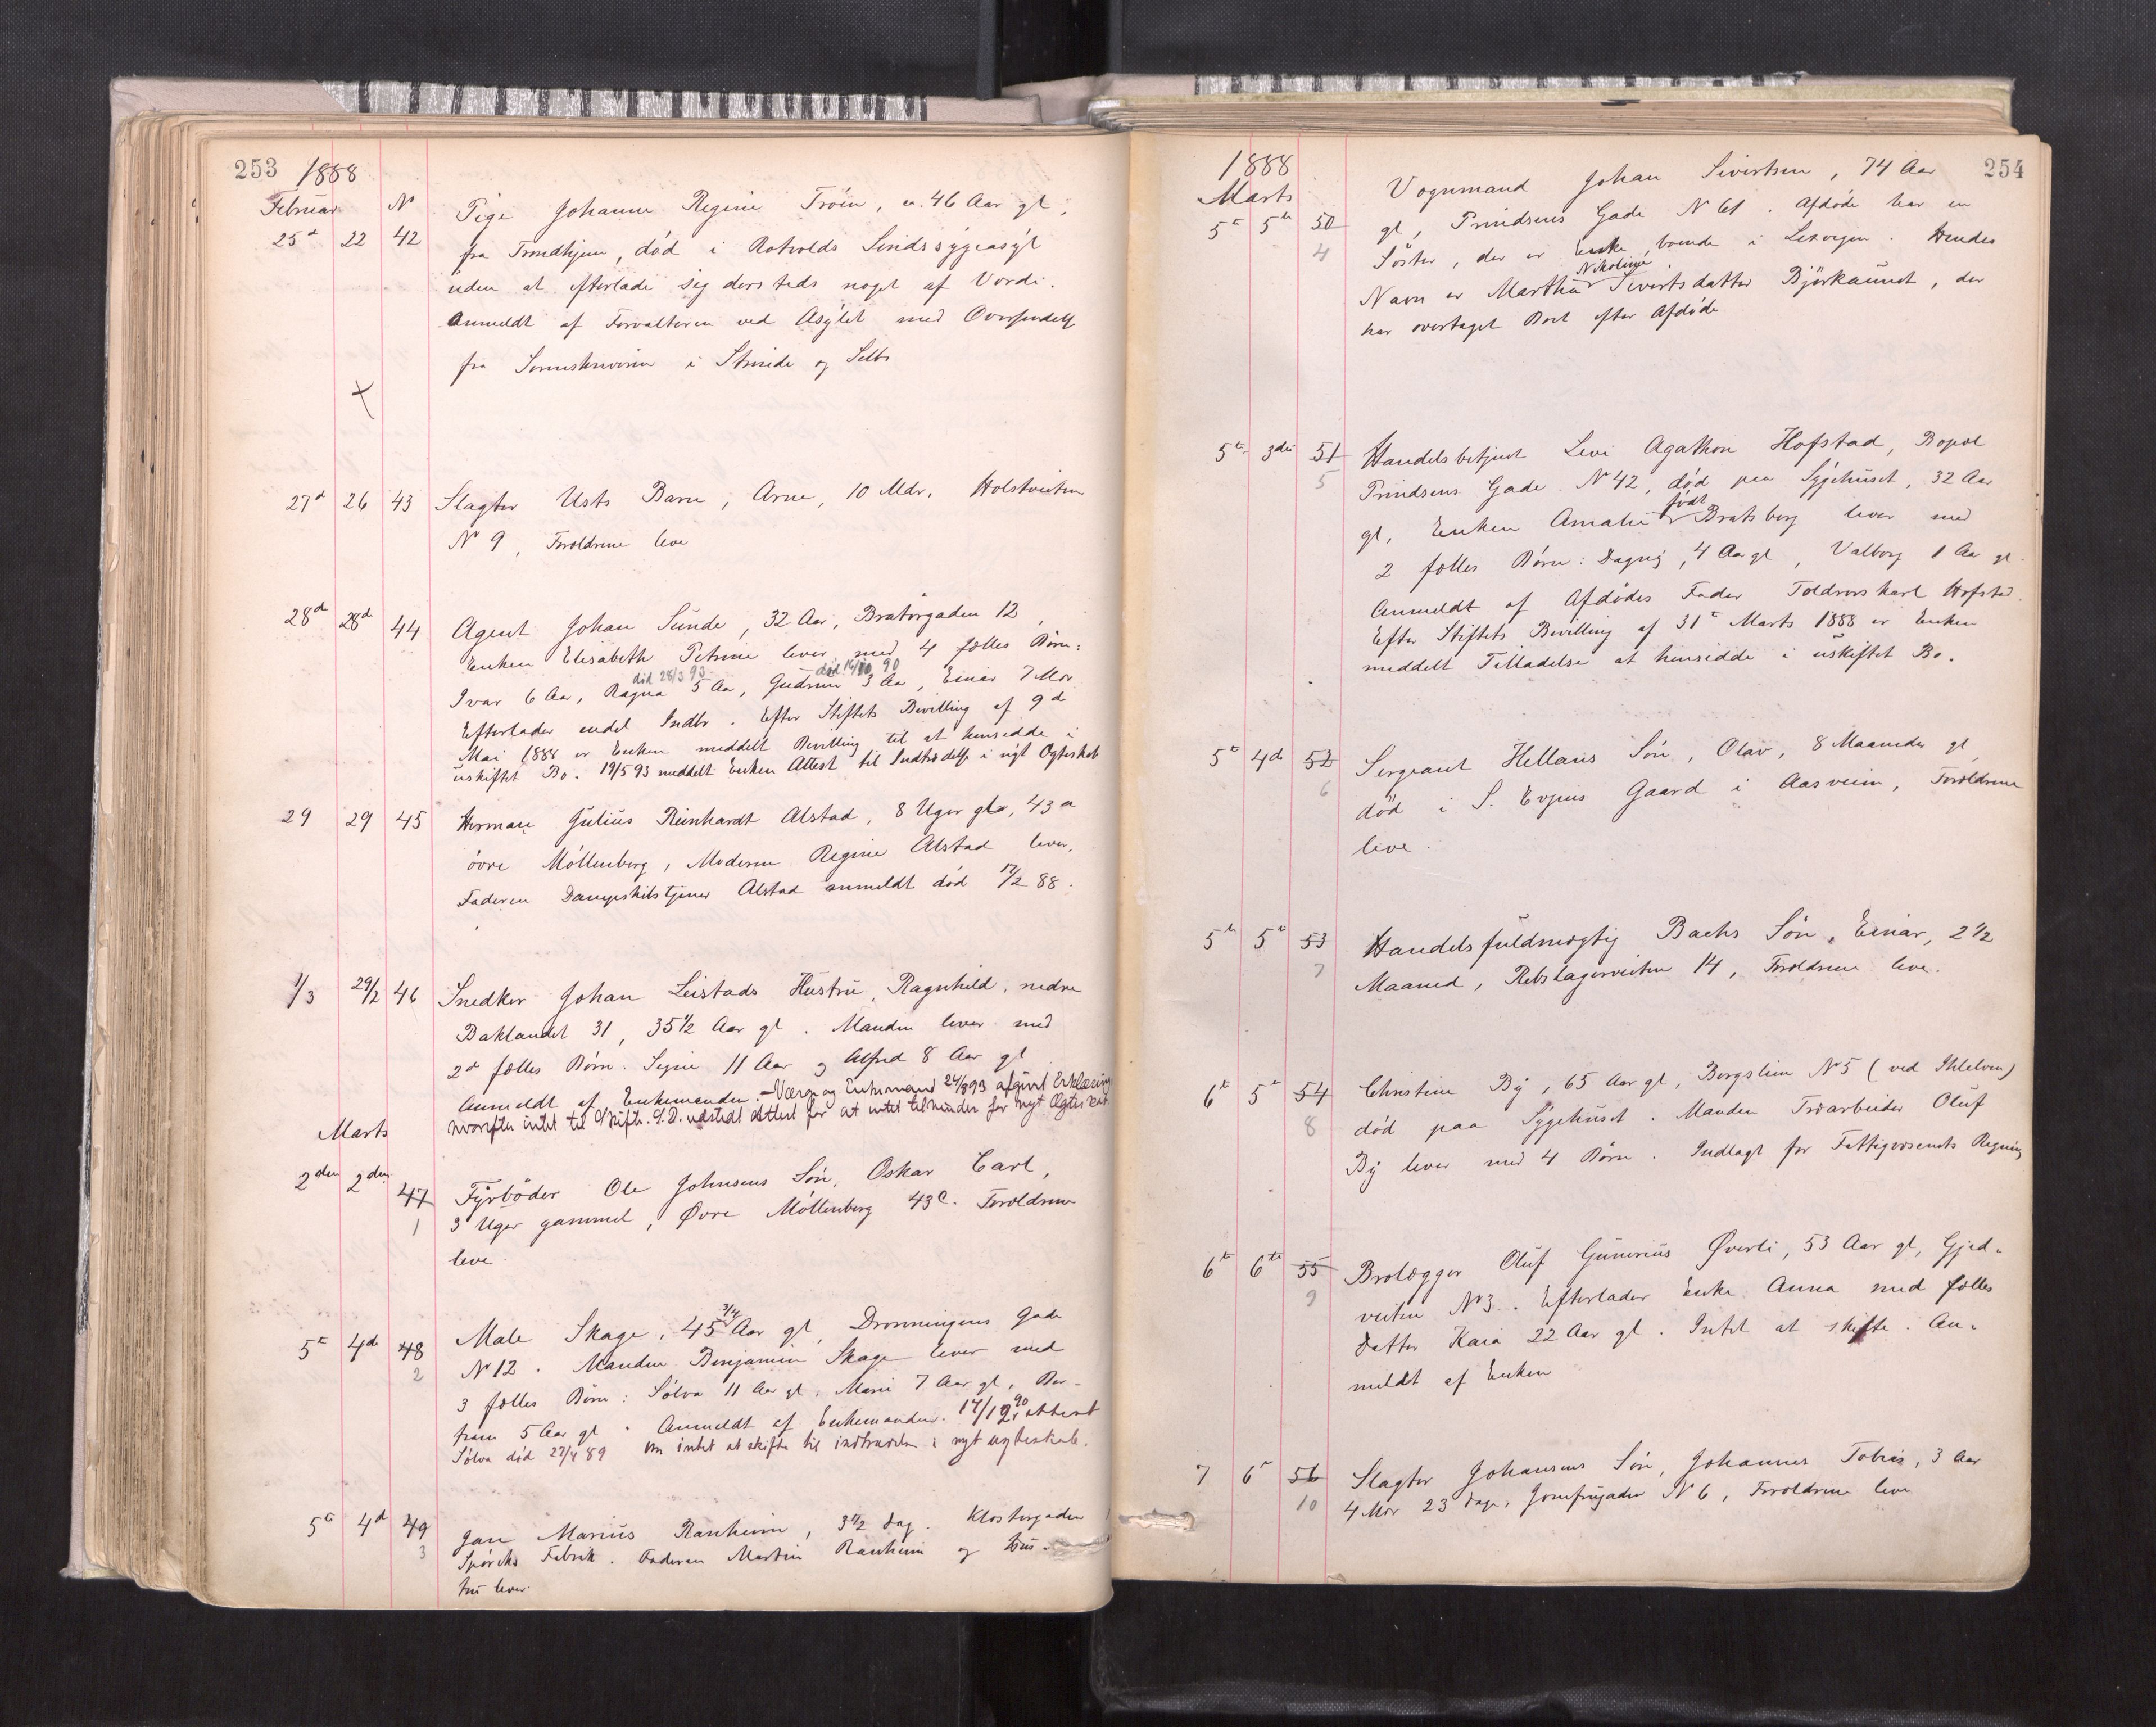 253 1888
Februar N
25d 22 42 Pige Johanne Regine Tröen, c. 46 Aar gl,
fra Trondhjem, död i Rotvolds Sindssygeasyl
uden at efterlade sig dersteds noget af Værdi.
Anmeldt af Forvalteren ved Asylet med Oversendelse
fra Sorenskriveren i Strinde og Selbu
27d 26 43 Slagter Usts Barn, Arne, 10 Mdr. Holstveiten
N 9, Forældrene leve
28d 28d 44 Agent Johan Sunde, 32 Aar, Bratörgaden 12,
Enken Elisabeth Petrine lever med 4 fælles Börn:
död 28/3 92 död 16/10 90
Ivar 6 Aar, Ragna 5 Aar, Gudrun 3 Aar, Einar 7 Mdr
Efterlader endel Indbo. Efter Stiftets Bevilling af 9d
Mai 1888 er Enken meddelt Bevilling til at hensidde i
uskiftet Bo. 19/5 93 meddelt Enken Attest til Indtrædelse i nyt Ægteskab
29 29 45 Herman Julius Reinhardt Alstad, 8 Uger gl, 43 a
övre Möllenberg, Moderen Regine Alstad lever,
Faderen Dampskibstjener Alstad anmeldt död 17/2 88.
1/3 29/2 46 Snedker Johan Leistads Hustru, Ragnhild, nedre
Baklandet 31, 35 1/2 Aar gl. Manden lever med
2d fælles Börn. Signe 11 Aar og Alfred 8 Aar gl
Anmeldt af Enkemanden. - Værge og Enkemand 24/8 93 afgivet Erklæring
hvorefter intet til Skifte. S.D. udstedt Attest for at intet til hinder for nyt Ægteskab
Marts
2den 2den 47 Fyrböder Ole Johnsens Sön, Oskar Carl,
1 3 Uger gammel, Øvre Möllenberg 43 c. Forældrene
leve
5te 4de 48 Male Skage, 45 3/4 Aar gl, Dronningens Gade
2 N 12. Manden Benjamin Skage lever med
3 fælles Börn: Sölva 11 Aar gl, Marie 7 Aar gl, Ber-
tram 5 Aar gl. Anmeldt af Enkemanden. 17/12 90 attest
Sölva död 27/4 89 om intet at skifte til indtræden i nyt ægteskab.
5te 4d 49 Jan Marius Ranheim, 3 1/2 Dag. Klostergaden
3 Spörcks Fabrik. Faderen Martin Ranheim og Hus-
tru lever
254
1888
Marts
5te 5te 50 Vognmand Johan Sivertsen, 74 Aar
4 gl, Prindsens Gade N 61. Afdöde har en
Söster, der er Enke, boende i Leksvigen. Hendes
Nikoline
Navn er Martha Sivertsdatter Björkaunet, der
har overtaget Boet efter Afdöde
5te 3die 51 Handelsbetjent Levi Agathon Hofstad, Bopæl
5 Prindsens Gade N 42, död paa Sygehuset, 32 Aar
født
gl, Enken Amalie Bratsberg lever med
2 fælles Börn: Dagny, 4 Aar gl, Valborg 1 Aar gl.
Anmeldt af Afdödes Fader Toldrorskarl Hofstad.
Efter Stiftets Bevilling af 31te Marts 1888 er Enken
meddelt Tilladelse at hensidde i uskiftet Bo.
5te 4de 52 Sergeant Hellans Sön, Olav, 8 Maaneder gl
6 död i S. Evjens Gaard i Aasveien, Forældrene
leve.
5te 5te 53 Handelsfuldmægtig Bachs Sön, Einar, 2 1/2
7 Maaned, Rebslagerveiten 14, Forældrene leve.
6te 5te 54 Christine By, 65 Aar gl, Bergslien N 5 (ved Ihlelven)
8 död paa Sygehuset. Manden Træarbeider Oluf
By lever med 4 Börn. Indlagt for Fattigvæsenets Regning
6te 6te 55 Brolægger Oluf Gunerius Øverli, 53 Aar gl, Gjed-
9 veiten N 3. Efterlader Enke Anna med fælles
Datter Kaia 22 Aar gl. Intet at skifte. An-
meldt af Enken
7 6te 56 Slagter Johansens Sön, Johannes Tobias, 3 Aar
10 4 Mdr 23 Dage, Jomfrugaden N 6, Forældrene leve